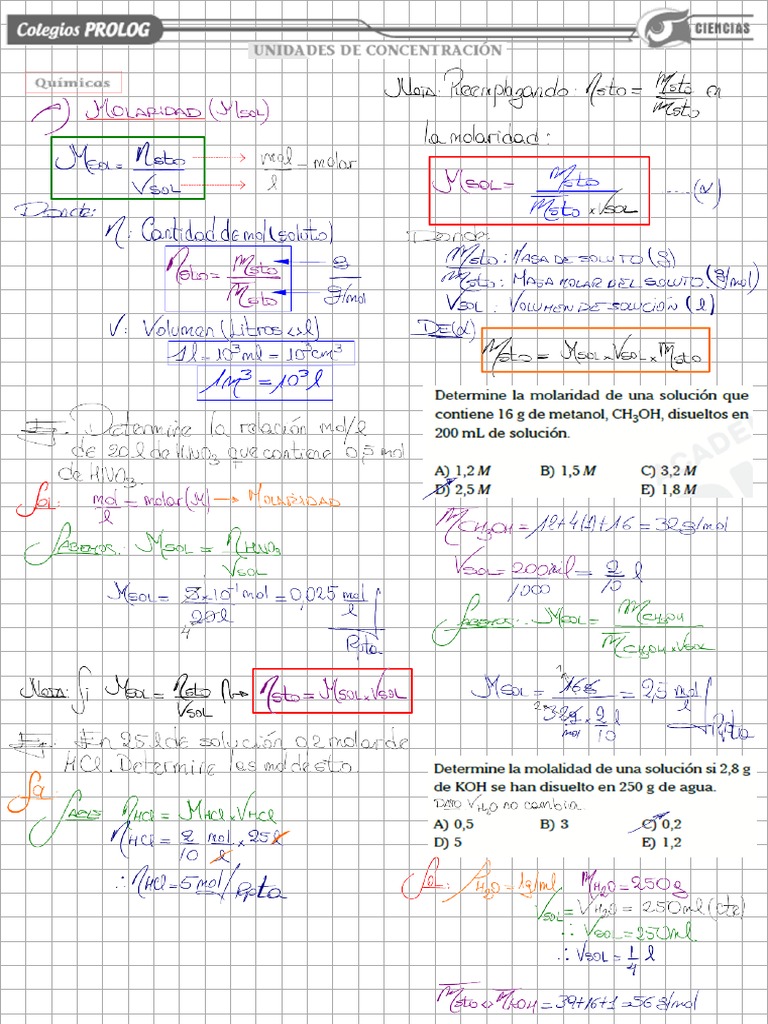 Colegios PROLOG
CIENCIAS
UNIDADES DE CONCENTRACIÓN
Químicas
MOLARIDAD (MSOL)
MSOL = nSTO / VSOL → mol / l = molar
Donde:
n: Cantidad de mol (soluto)
nSTO = mSTO / M̅STO ← g / g/mol
V: Volumen (Litros <> l)
1l = 10³ml = 10³cm³
1m³ = 10³l
Ej: Determine la relación mol/l
de 20l de HNO₃ que contiene 0,5 mol
de HNO₃.
Sol: mol / l = molar (M) → MOLARIDAD
Sabemos: MSOL = nHNO₃ / VSOL
MSOL = 5×10⁻¹ mol / 20l = 0,025 mol / l
4
Rpta
Nota: Si MSOL = nSTO / VSOL → nSTO = MSOL × VSOL
Ej: En 25l de solución 0,2 molar de
HCl. Determine las mol de sto.
Sol
Sabes nHCl = MHCl × VHCl
nHCl = 2 / 10 mol / l × 25l
∴ nHCl = 5 mol / Rpta
Nota: Reemplazando: nSTO = mSTO / M̅STO en
la molaridad:
MSOL = mSTO / M̅STO × VSOL ......(α)
Donde:
mSTO: MASA DE SOLUTO (g)
M̅STO: MASA MOLAR DEL SOLUTO (g/mol)
VSOL: VOLUMEN DE SOLUCIÓN (l)
DE(α)
mSTO = MSOL × VSOL × M̅STO
Determine la molaridad de una solución que
contiene 16 g de metanol, CH₃OH, disueltos en
200 mL de solución.
A) 1,2 M B) 1,5 M C) 3,2 M
D) 2,5 M E) 1,8 M
M̅CH₃OH = 12+4(1)+16 = 32g/mol
VSOL = 200ml / 1000 = 2 / 10 l
Sabemos: MSOL = mCH₃OH / M̅CH₃OH × VSOL
MSOL = 16g / 32g/mol × 2/10 l = 2,5 mol / l
Rpta
Determine la molalidad de una solución si 2,8 g
de KOH se han disuelto en 250 g de agua.
Dato VH₂O no cambia
A) 0,5 B) 3 C) 0,2
D) 5 E) 1,2
Sol: ρH₂O = 1g/ml mH₂O = 250g
VSOL = VH₂O = 250ml (cte)
∴ VSOL = 250ml
∴ VSOL = 1 / 4 l
M̅STO <> M̅KOH = 39+16+1 = 56 g/mol